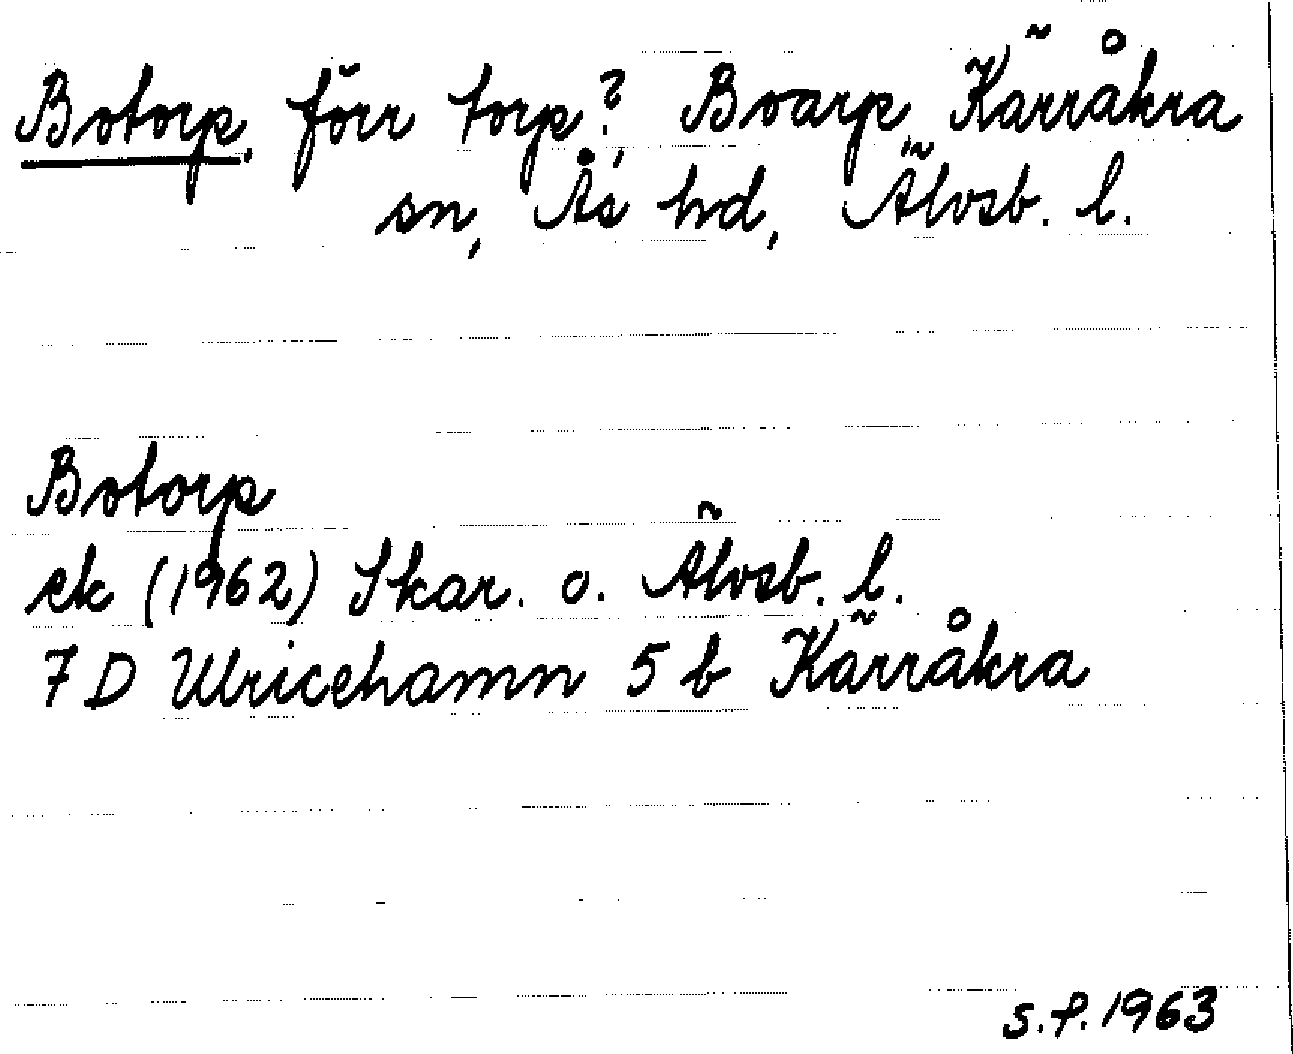 Botorp, förr torp?, Boarp, Kärråkra
sn, Ås hd, Älvsb. l.
Botorp
ek (1962) Skar. o. Älvsb. l.
7D Ulricehamn 5 b Kärråkra
S.f. 1963